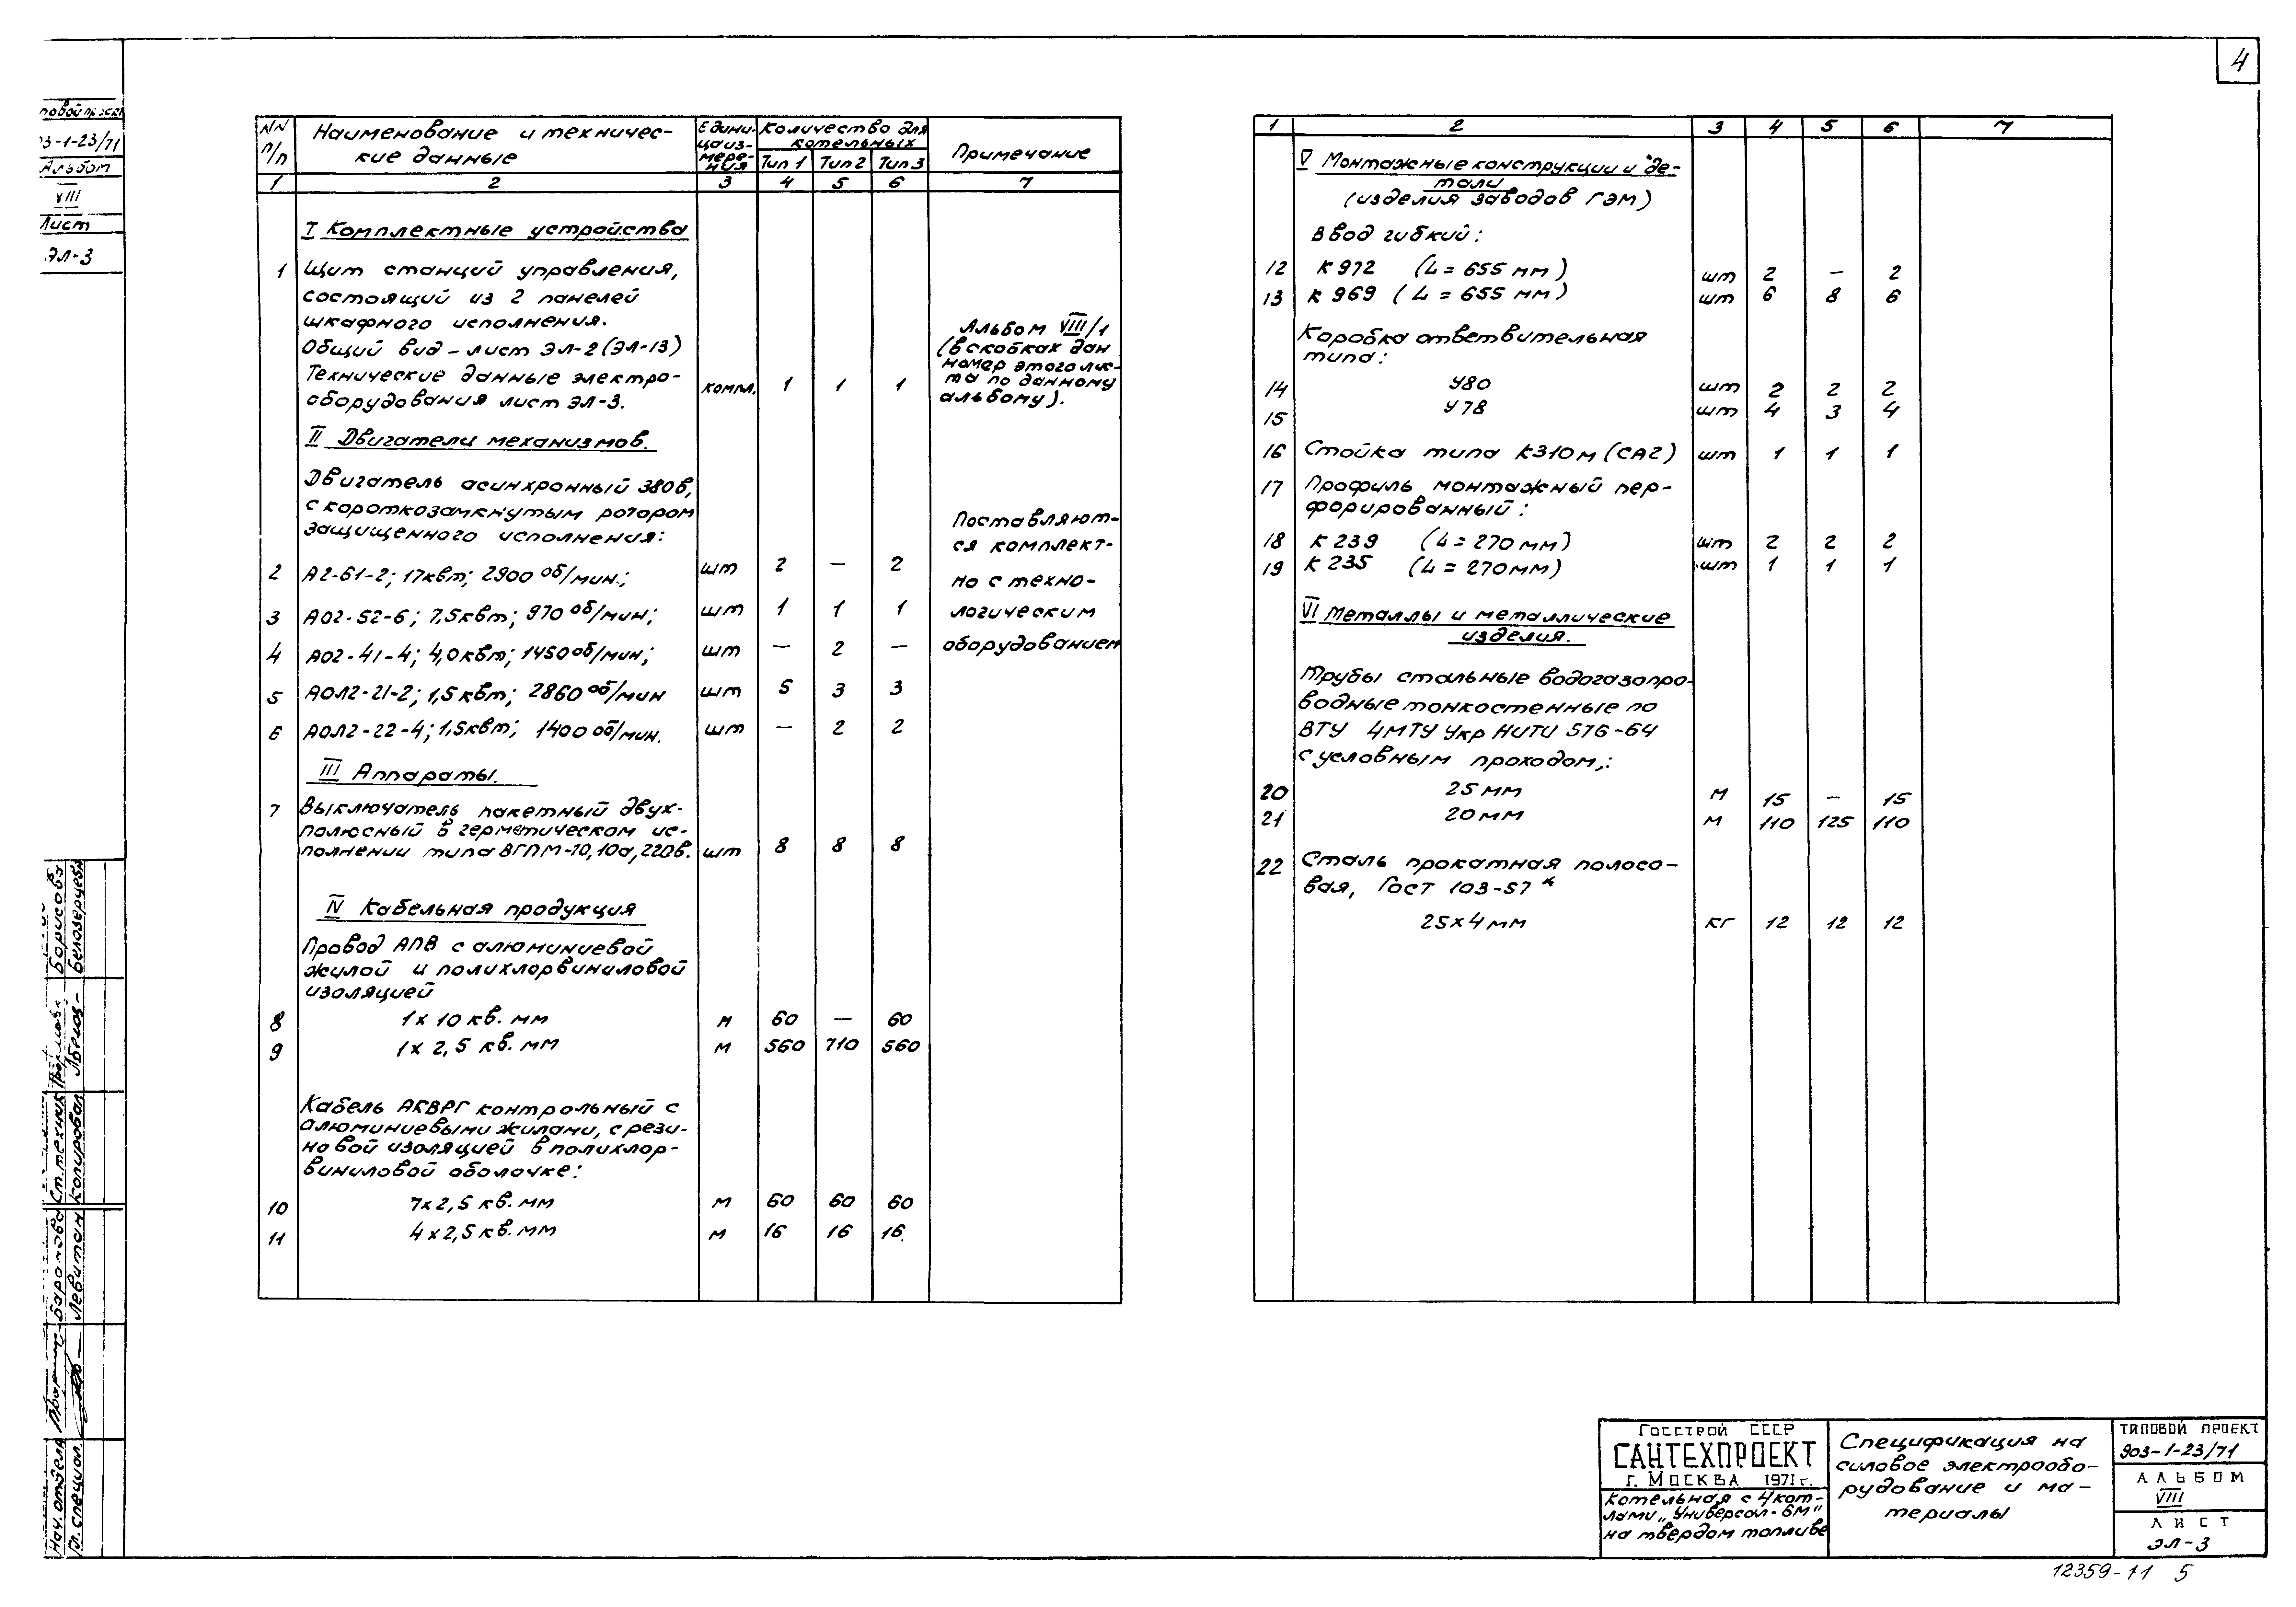 4
03-1-23/71
Альбом
VIII
Лист
ЭЛ-3
N/N п/п Наименование и техничес-
кие данные
Едини-
ца из-
мере-
ния
Количество для
котельных
Тип 1 Тип 2 Тип 3
Примечание
1 2 3 4 5 6 7
I Комплектные устройства
1 Щит станций управления,
состоящий из 2 панелей
шкафного исполнения.
Общий вид - лист ЭЛ-2 (ЭЛ-13)
Технические данные электро-
оборудования лист ЭЛ-3. компл. 1 1 1
Альбом VIII/1
(в скобках дан
номер этого лис-
та по данному
альбому).
II Двигатели механизмов.
Двигатель асинхронный 380в,
с короткозамкнутым ротором
защищенного исполнения:
2 А2-61-2; 17квт; 2900 об/мин.; шт 2 — 2
3 АО2-52-6; 7,5квт; 970 об/мин; шт 1 1 1
4 АО2-41-4; 4,0квт; 1450 об/мин; шт — 2 —
5 АОЛ2-21-2; 1,5квт; 2860 об/мин шт 5 3 3
6 АОЛ2-22-4; 1,5квт; 1400 об/мин. шт — 2 2
Поставляют-
ся комплект-
но с техно-
логическим
оборудованием
III Аппараты.
7 Выключатель пакетный двух-
полюсный в герметическом ис-
полнении типа ВГПМ-10, 10а, 220в. шт 8 8 8
IV Кабельная продукция
Провод АПВ с алюминиевой
жилой и полихлорвиниловой
изоляцией
8 1х10 кв. мм м 60 — 60
9 1х2,5 кв. мм м 560 710 560
Кабель АКВРГ контрольный с
алюминиевыми жилами, с рези-
новой изоляцией в полихлор-
виниловой оболочке:
10 7х2,5 кв. мм м 60 60 60
11 4х2,5 кв. мм м 16 16 16.
1 2 3 4 5 6 7
V Монтажные конструкции и де-
тали
(изделия заводов ГЭМ)
Ввод гибкий:
12 К 972 (L=655 мм) шт 2 — 2
13 К 969 (L=655 мм) шт 6 8 6
Коробка ответвительная
типа:
14 У80 шт 2 2 2
15 У78 шт 4 3 4
16 Стойка типа К310м (СА2) шт 1 1 1
17 Профиль монтажный пер-
форированный:
18 К 239 (L=270 мм) шт 2 2 2
19 К 235 (L=270мм) шт 1 1 1
VI Металлы и металлические
изделия.
Трубы стальные водогазопро-
водные тонкостенные по
ВТУ 4МТУ Укр НИТИ 576-64
с условным проходом,:
20 25 мм м 15 — 15
21 20 мм м 110 125 110
22 Сталь прокатная полосо-
вая, ГОСТ 103-57*
25х4 мм кг 12 12 12
Борисова
Белозерцева
Ст.техник
Копировал
Баронова
Левитан
Нач. отдела
Гл. специал.
Госстрой СССР
САНТЕХПРОЕКТ
г. Москва 1971г.
Котельная с 4 кот-
лами „Универсал-6М"
на твердом топливе
Спецификация на
силовое электрообо-
рудование и ма-
териалы
Типовой проект
903-1-23/71
Альбом
VIII
Лист
ЭЛ-3
12359-11 5